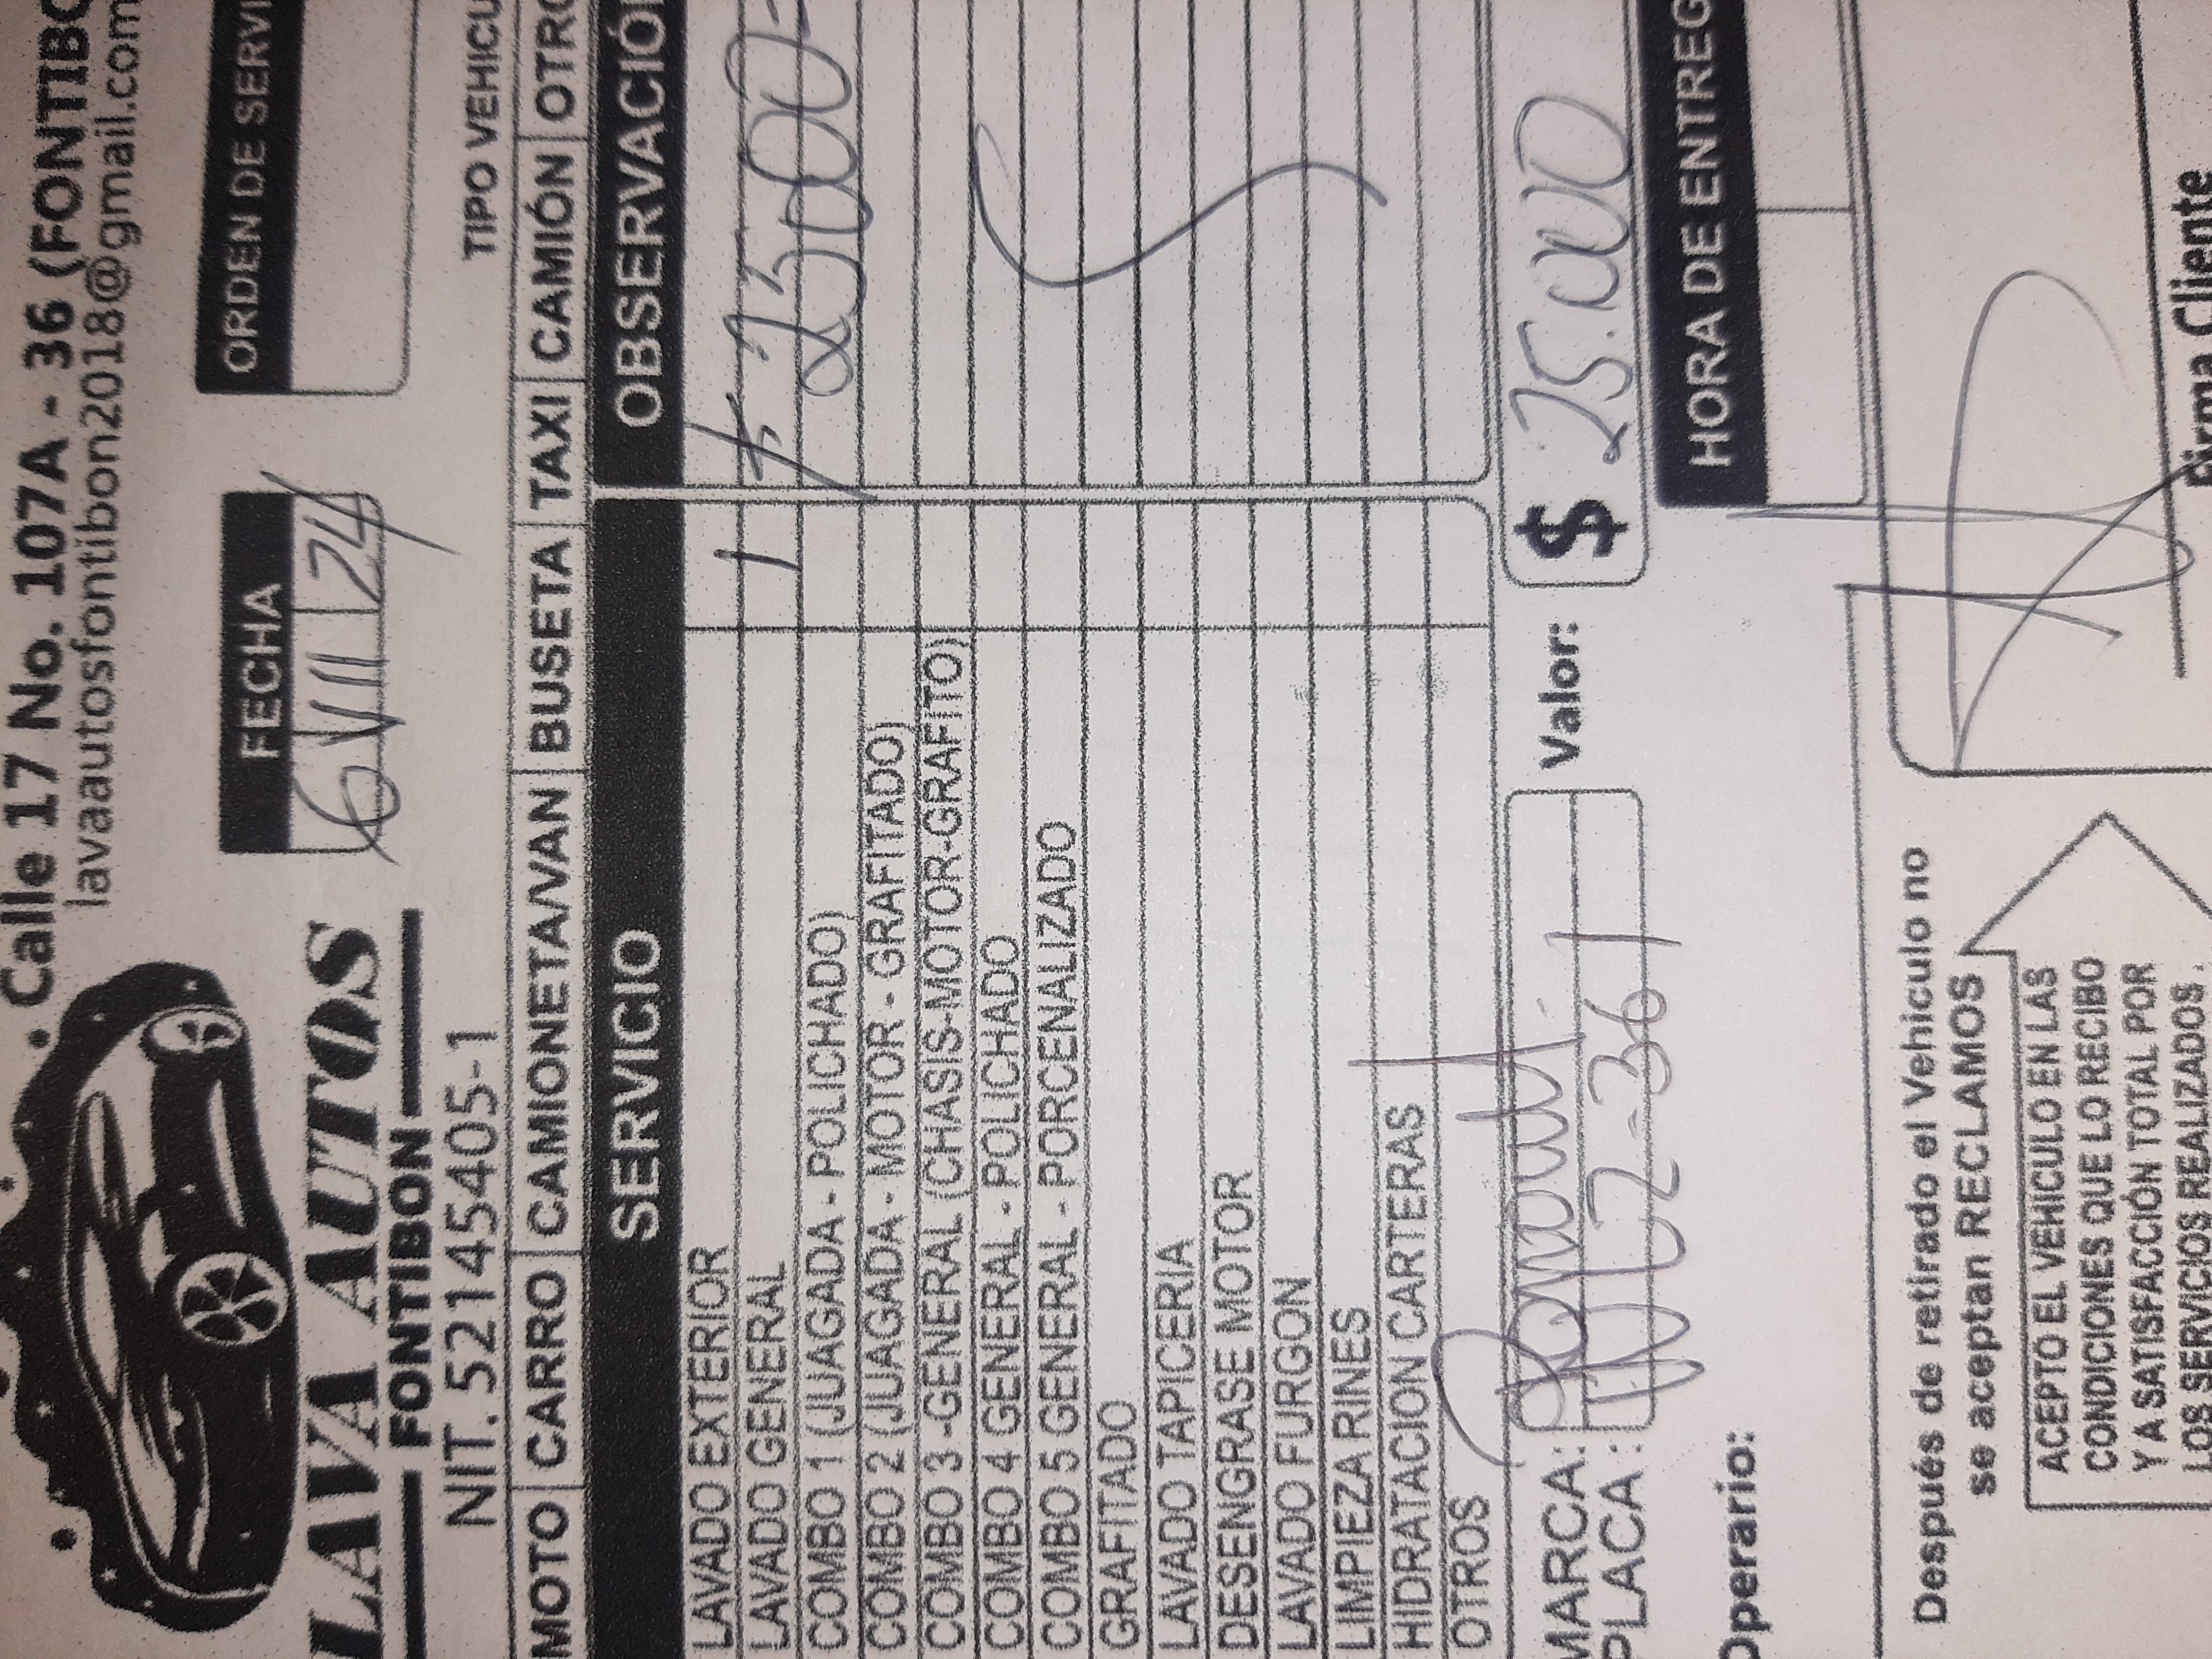 Calle 17 No. 107A - 36 (FONTIBO
lavaautosfontibon2018@gmail.com
LAVA AUTOS
FONTIBON
NIT. 52145405-1
FECHA
6 VIII 24
ORDEN DE SERVI
TIPO VEHICU
MOTO CARRO CAMIONETA/VAN BUSETA TAXI CAMIÓN OTRO
SERVICIO OBSERVACIÓ
LAVADO EXTERIOR
LAVADO GENERAL 1
COMBO 1 (JUAGADA - POLICHADO)
COMBO 2 (JUAGADA - MOTOR - GRAFITADO)
COMBO 3 -GENERAL (CHASIS-MOTOR-GRAFITO)
COMBO 4 GENERAL - POLICHADO
COMBO 5 GENERAL - PORCENALIZADO
GRAFITADO
LAVADO TAPICERIA
DESENGRASE MOTOR
LAVADO FURGON
LIMPIEZA RINES
HIDRATACION CARTERAS
OTROS
MARCA: Renault Valor: $ 25.000
PLACA: 2-361
HORA DE ENTREG
Operario:
Después de retirado el Vehiculo no
se aceptan RECLAMOS
ACEPTO EL VEHICULO EN LAS
CONDICIONES QUE LO RECIBO
Y A SATISFACCIÓN TOTAL POR
LOS SERVICIOS REALIZADOS.
Firma Cliente